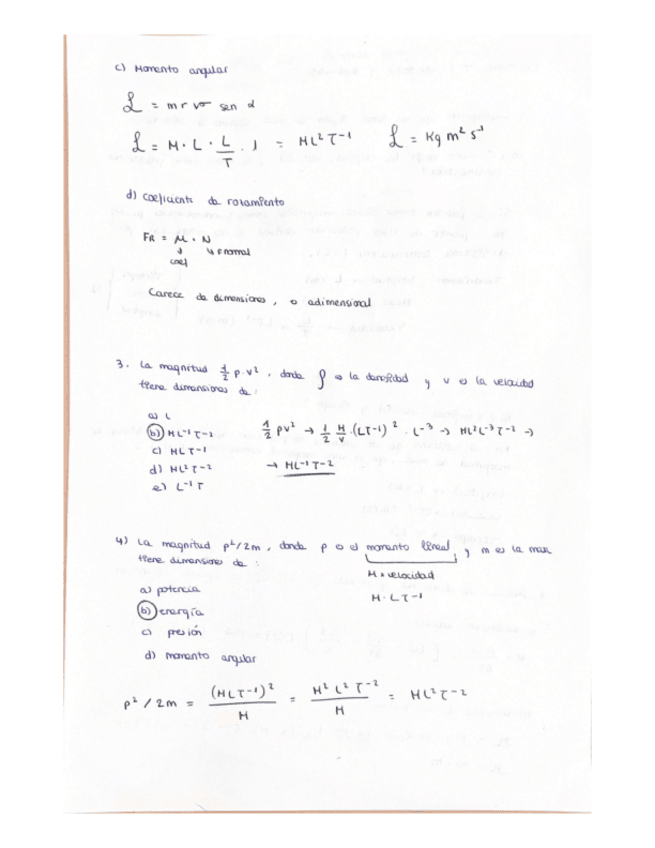 c) Momento angular
L = m r v sen α
L = M · L · L/T · 1 = ML² T⁻¹    L = Kg m² s⁻¹
d) Coeficiente de rozamiento
FR = μ · N
coef    F normal
Carece de dimensiones, o adimensional
3. La magnitud 1/2 ρ v², donde ρ es la densidad y v es la velocidad
tiene dimensiones de:
a) L
b) ML⁻¹T⁻²    1/2 ρv² → 1/2 M/V · (LT⁻¹)² · L⁻³ → ML²L⁻³T⁻² →
c) MLT⁻¹
d) ML²T⁻²    → ML⁻¹T⁻²
e) L⁻¹T
4) La magnitud p²/2m, donde p es el momento lineal y m es la masa
tiene dimensiones de :
M x velocidad
a) potencia    M · LT⁻¹
b) energía
c) presión
d) momento angular
p²/2m = (MLT⁻¹)²/M = M² L² T⁻²/M = ML²T⁻²